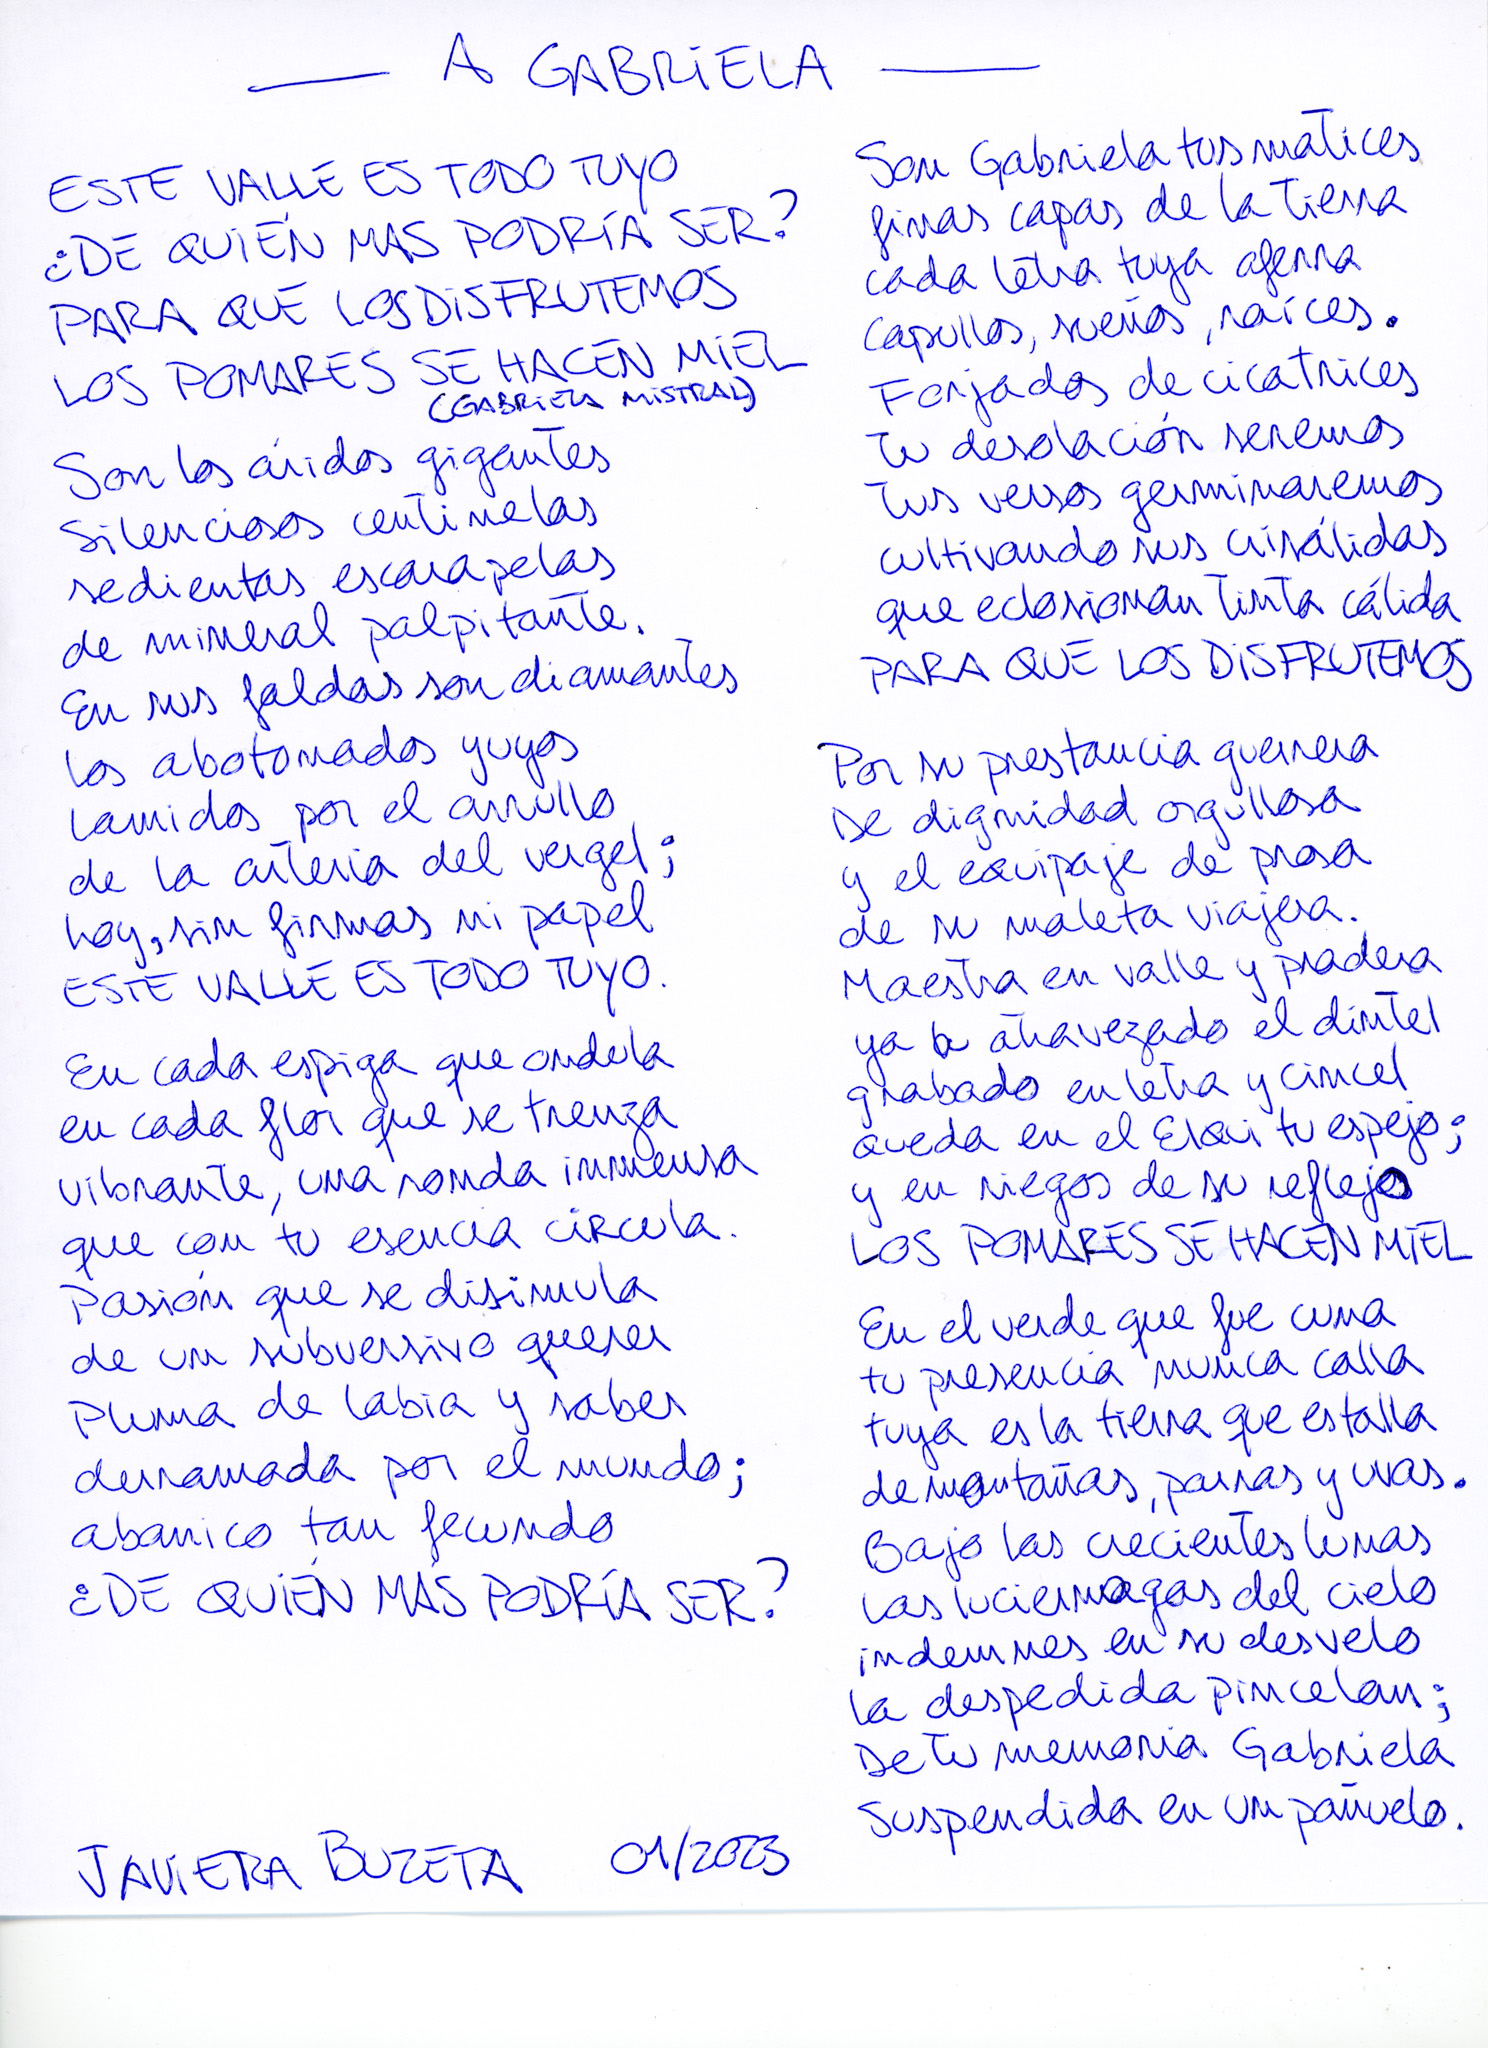 A GABRIELA
ESTE VALLE ES TODO TUYO
¿DE QUIÉN MAS PODRÍA SER?
PARA QUE LOS DISFRUTEMOS
LOS POMARES SE HACEN MIEL
(GABRIELA MISTRAL)
Son los áridos gigantes
Silenciosos centinelas
sedientas escarapelas
de mineral palpitante.
En sus faldas son diamantes
los abotonados yuyos
lamidos por el arrullo
de la arteria del vergel;
hoy, sin firmas ni papel
ESTE VALLE ES TODO TUYO.
En cada espiga que ondula
en cada flor que se trenza
vibrante, una ronda inmensa
que con tu esencia circula.
Pasión que se disimula
de un subversivo querer
Pluma de labia y saber
derramada por el mundo;
abanico tan fecundo
¿DE QUIÉN MÁS PODRÍA SER?
Son Gabriela tus matices
finas capas de la tierra
cada letra tuya aferra
capullos, sueños, raíces.
Forjados de cicatrices
tu desolación seremos
tus versos germinaremos
cultivando sus crisálidas
que eclosionan tinta cálida
PARA QUE LOS DISFRUTEMOS
Por su prestancia guerrera
De dignidad orgullosa
y el equipaje de prosa
de su maleta viajera.
Maestra en valle y pradera
ya ha atravezado el dintel
grabado en letra y cincel
queda en el Elqui tu espejo;
y en riegos de su reflejo
LOS POMARES SE HACEN MIEL
En el verde que fue cuna
tu presencia nunca calla
tuya es la tierra que estalla
de montañas, parras y uvas.
Bajo las crecientes lunas
las luciernagas del cielo
indemnes en su desvelo
la despedida pincelan;
De tu memoria Gabriela
Suspendida en un pañuelo.
JAVIERA BUZETA 01/2023